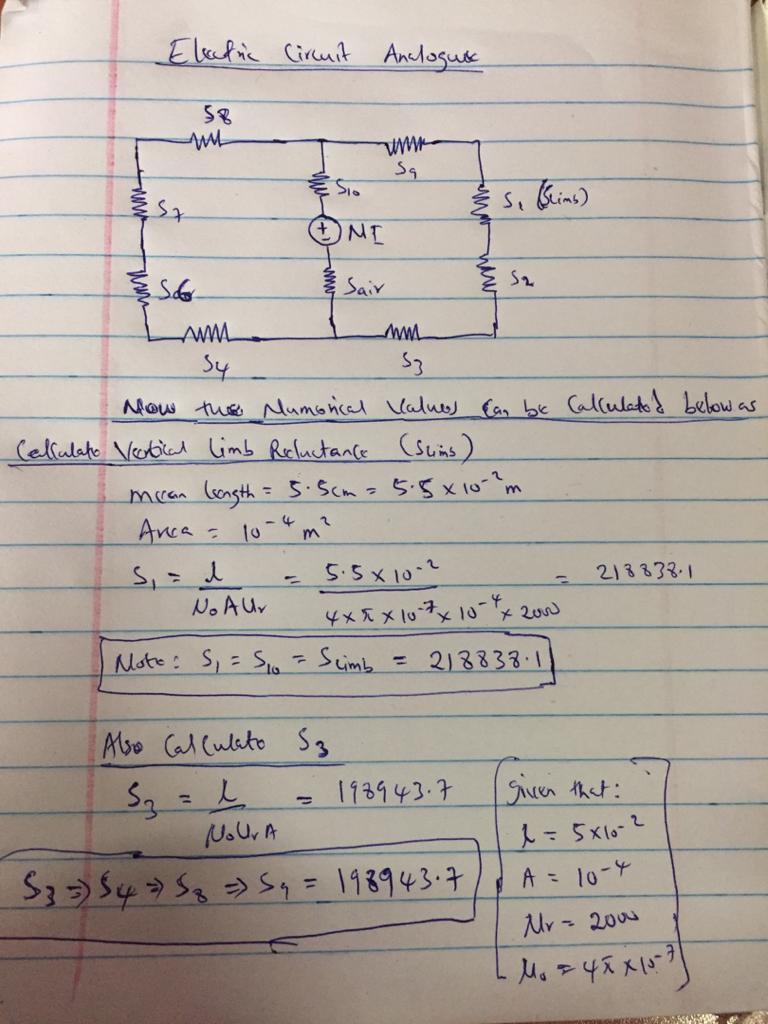 Electric Circuit Analogue
S8
S9
S10
S7
S1 (Slimb)
NI
S6
Sair
S2
S4
S3
Now these Numerical Values Can be Calculated below as
Calculate Vertical Limb Reluctance (Slimb)
mean length = 5.5cm = 5.5 x 10⁻² m
Area = 10⁻⁴ m²
S1 = l / N₀AUr = 5.5 x 10⁻² / 4 x π x 10⁻⁷ x 10⁻⁴ x 2000 = 218838.1
Note: S1 = S10 = Slimb = 218838.1
Also Calculate S3
S3 = l / N₀UrA = 198943.7
S3 ⇒ S4 ⇒ S8 ⇒ S9 = 198943.7
Given that:
l = 5x10⁻²
A = 10⁻⁴
Nr = 2000
μ₀ = 4π x10⁻⁷